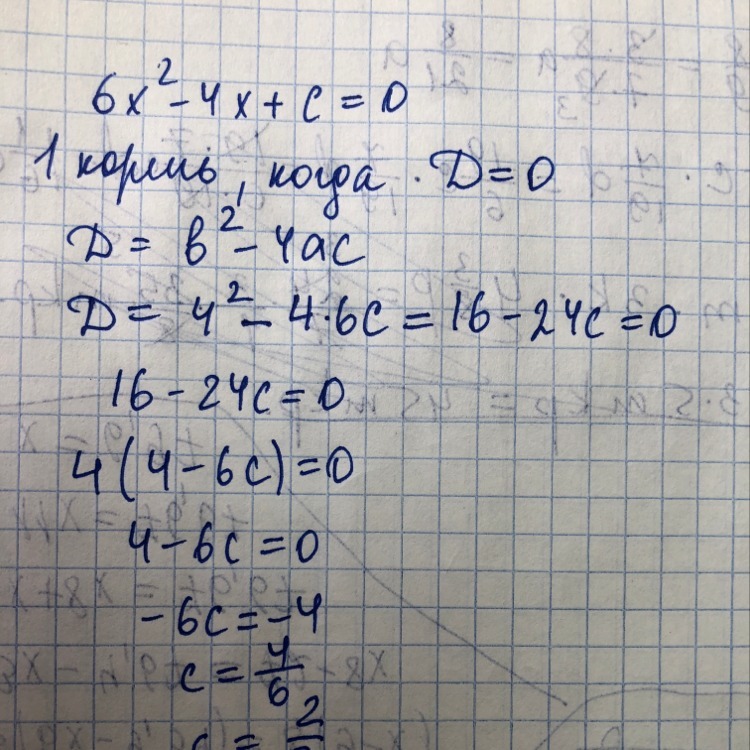 6x² - 4x + c = 0
1 корень, когда. D = 0
D = b² - 4ac
D = 4² - 4·6c = 16 - 24c = 0
16 - 24c = 0
4(4 - 6c) = 0
4 - 6c = 0
-6c = -4
c = 4/6
c = 2/